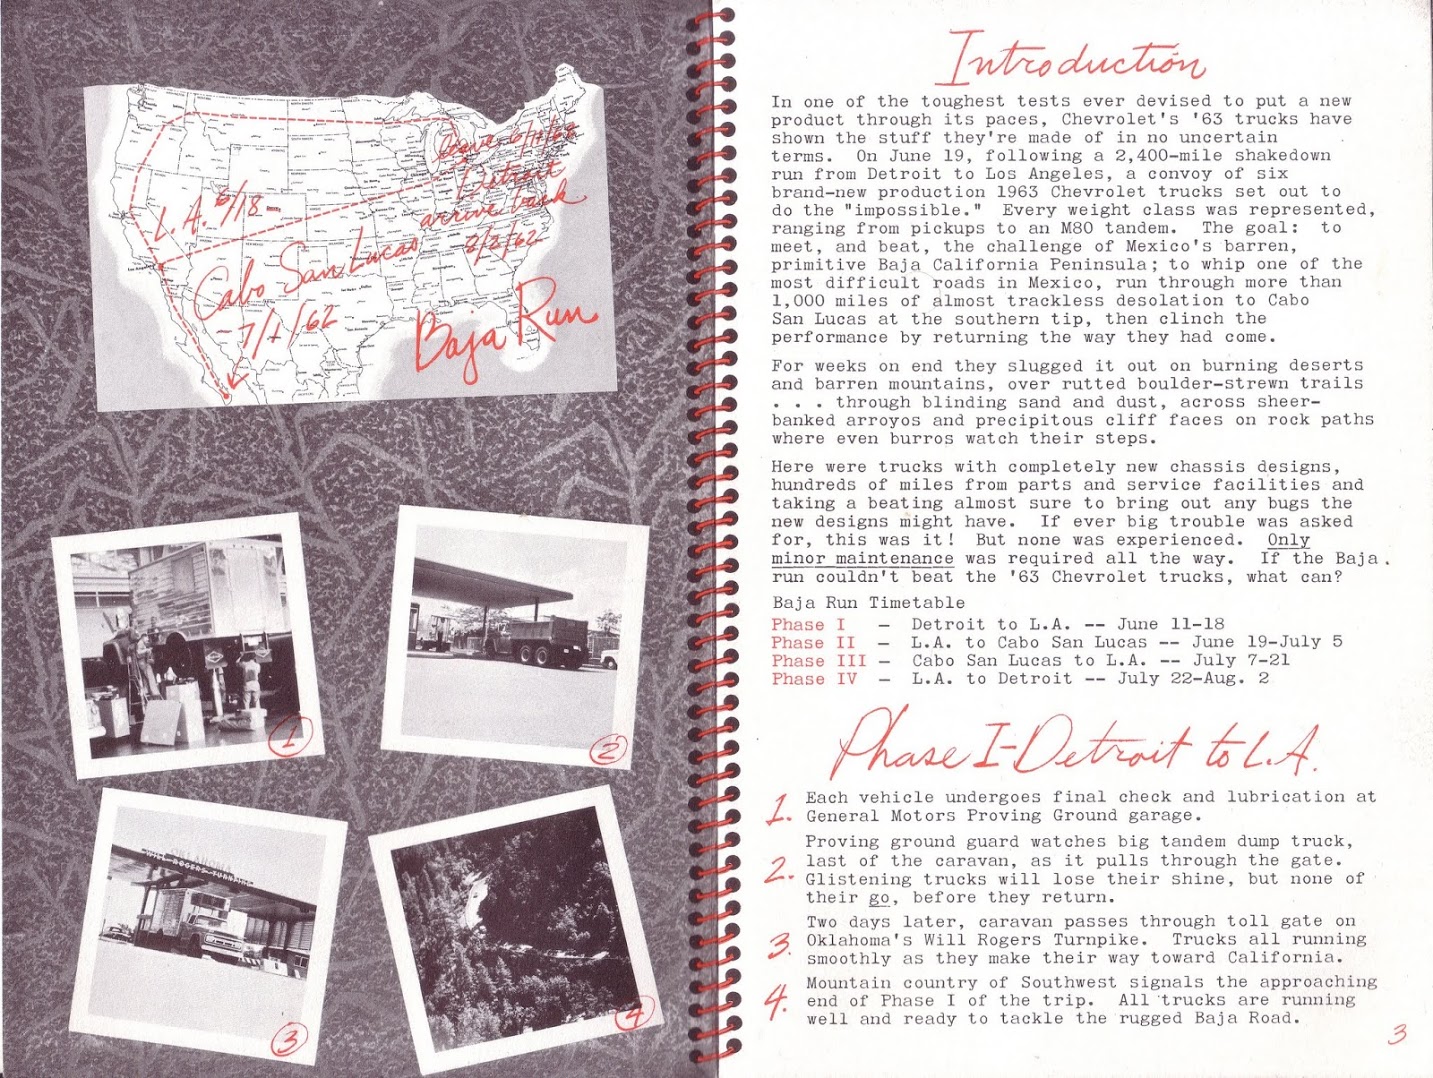 Leave 6/11/62
Detroit
arrive back
8/2/62
L.A. 6/18
Cabo San Lucas
-7/1/62
Baja Run
1
2
WILL ROGERS TURNPIKE
3
4
Introduction
In one of the toughest tests ever devised to put a new
product through its paces, Chevrolet's '63 trucks have
shown the stuff they're made of in no uncertain
terms. On June 19, following a 2,400-mile shakedown
run from Detroit to Los Angeles, a convoy of six
brand-new production 1963 Chevrolet trucks set out to
do the "impossible." Every weight class was represented,
ranging from pickups to an M80 tandem. The goal: to
meet, and beat, the challenge of Mexico's barren,
primitive Baja California Peninsula; to whip one of the
most difficult roads in Mexico, run through more than
1,000 miles of almost trackless desolation to Cabo
San Lucas at the southern tip, then clinch the
performance by returning the way they had come.
For weeks on end they slugged it out on burning deserts
and barren mountains, over rutted boulder-strewn trails
. . . through blinding sand and dust, across sheer-
banked arroyos and precipitous cliff faces on rock paths
where even burros watch their steps.
Here were trucks with completely new chassis designs,
hundreds of miles from parts and service facilities and
taking a beating almost sure to bring out any bugs the
new designs might have. If ever big trouble was asked
for, this was it! But none was experienced. Only
minor maintenance was required all the way. If the Baja
run couldn't beat the '63 Chevrolet trucks, what can?
Baja Run Timetable
Phase I – Detroit to L.A. -- June 11-18
Phase II – L.A. to Cabo San Lucas -- June 19-July 5
Phase III – Cabo San Lucas to L.A. -- July 7-21
Phase IV – L.A. to Detroit -- July 22-Aug. 2
Phase I-Detroit to L.A.
1. Each vehicle undergoes final check and lubrication at
General Motors Proving Ground garage.
Proving ground guard watches big tandem dump truck,
2. last of the caravan, as it pulls through the gate.
Glistening trucks will lose their shine, but none of
their go, before they return.
Two days later, caravan passes through toll gate on
3. Oklahoma's Will Rogers Turnpike. Trucks all running
smoothly as they make their way toward California.
Mountain country of Southwest signals the approaching
4. end of Phase I of the trip. All trucks are running
well and ready to tackle the rugged Baja Road.
3